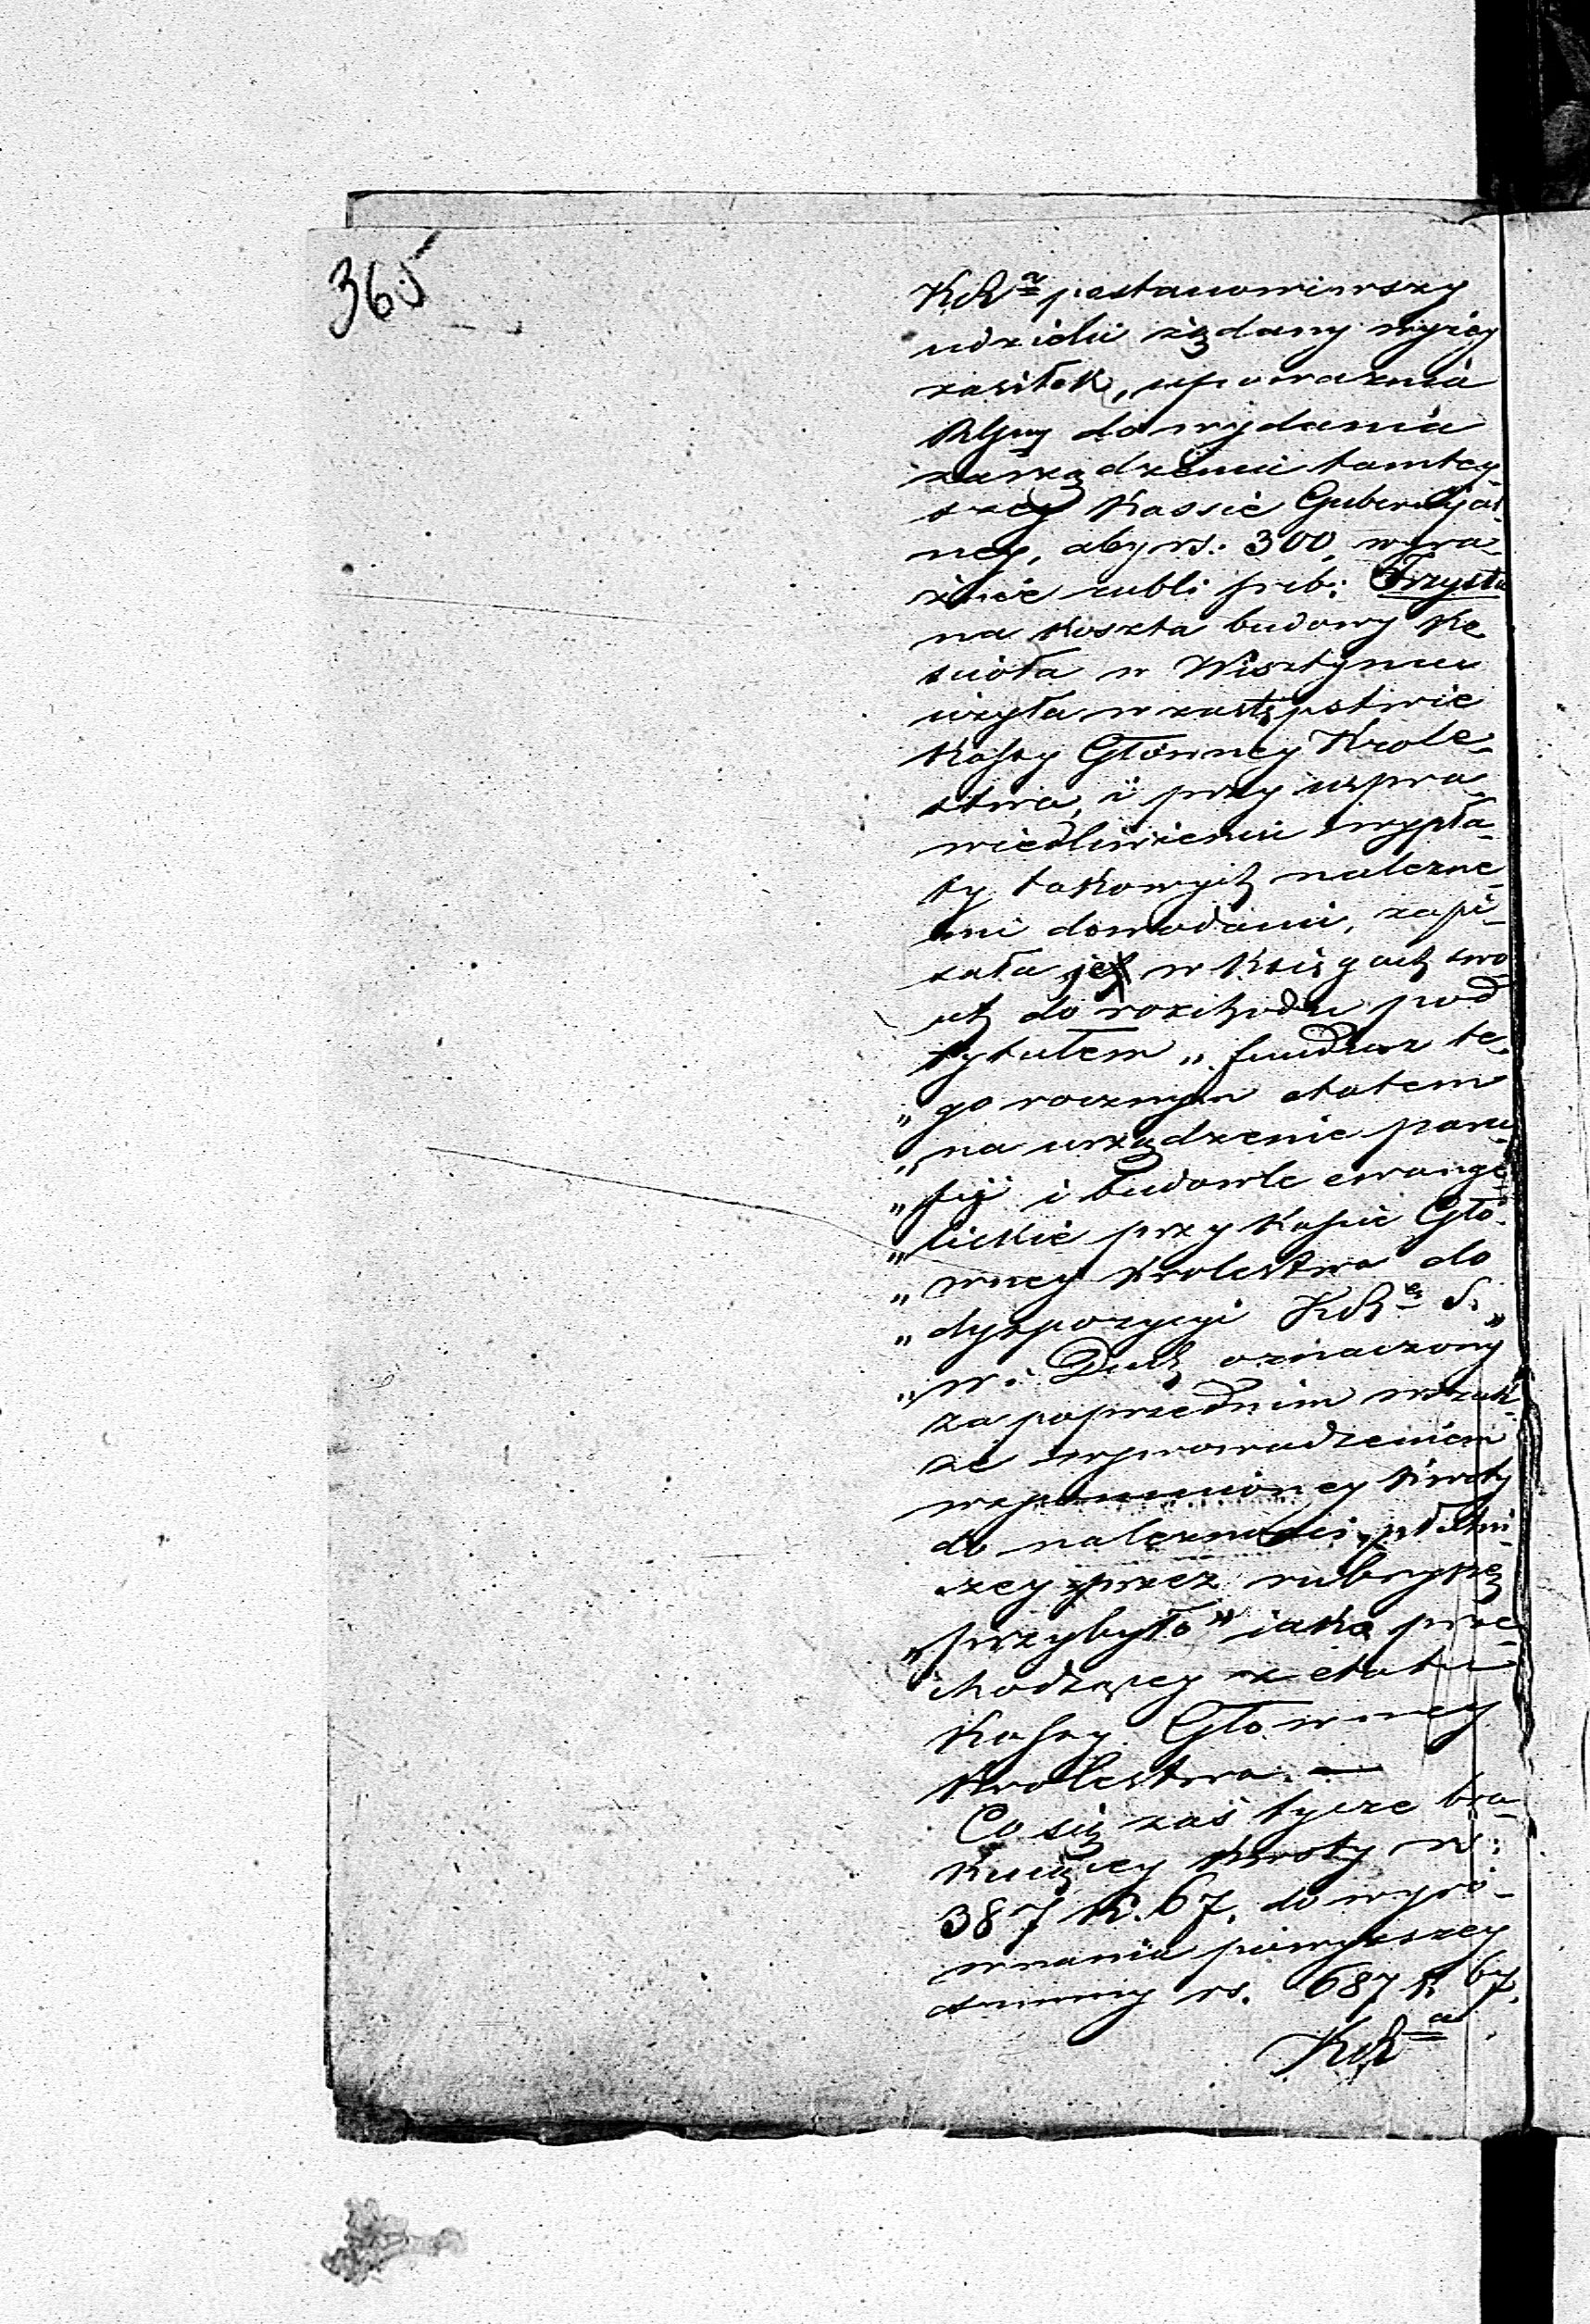 365
KRa postanowiwszy
udzielić żądany wyżey
zasiłek, upoważnia
RGny do wydania
zarządzenia tamtey
szey Kassie Gubernijal
ney, aby rs: 300, wyra-
źnie rubli sreb: Trzysta
na koszta budowy Ko
scioła w Wisztyńcu
użyła w zastępstwie
Kassy Główney Krole-
stwa, i przy uspra-
wiedliwieniu wypła-
ty takowych należne-
mi dowodami, zapi-
sała je w Księgach swo
ich do rozchodu pod
tytułem „fundusz te-
„go rocznym etatem
„na urządzenie para
„fij i budowle ewange
„lickie przy Kassie Głó-
„wney Krolestwa do
„dyspozycyi KRey S.
„W. i Duch oznaczony"
za poprzednim wszak-
że wyprowadzeniem
wspomnioney kwoty
do należności
przez rubrykę
„przybyło" iako po
chodzącey z etatu
Kassy Głowney
Krolestwa.—
Co się zaś tycze bra-
kuiącey kwoty rs:
387 k. 67. do wyró-
wnania powyższey
summy rs. 687 k 67.
KRa